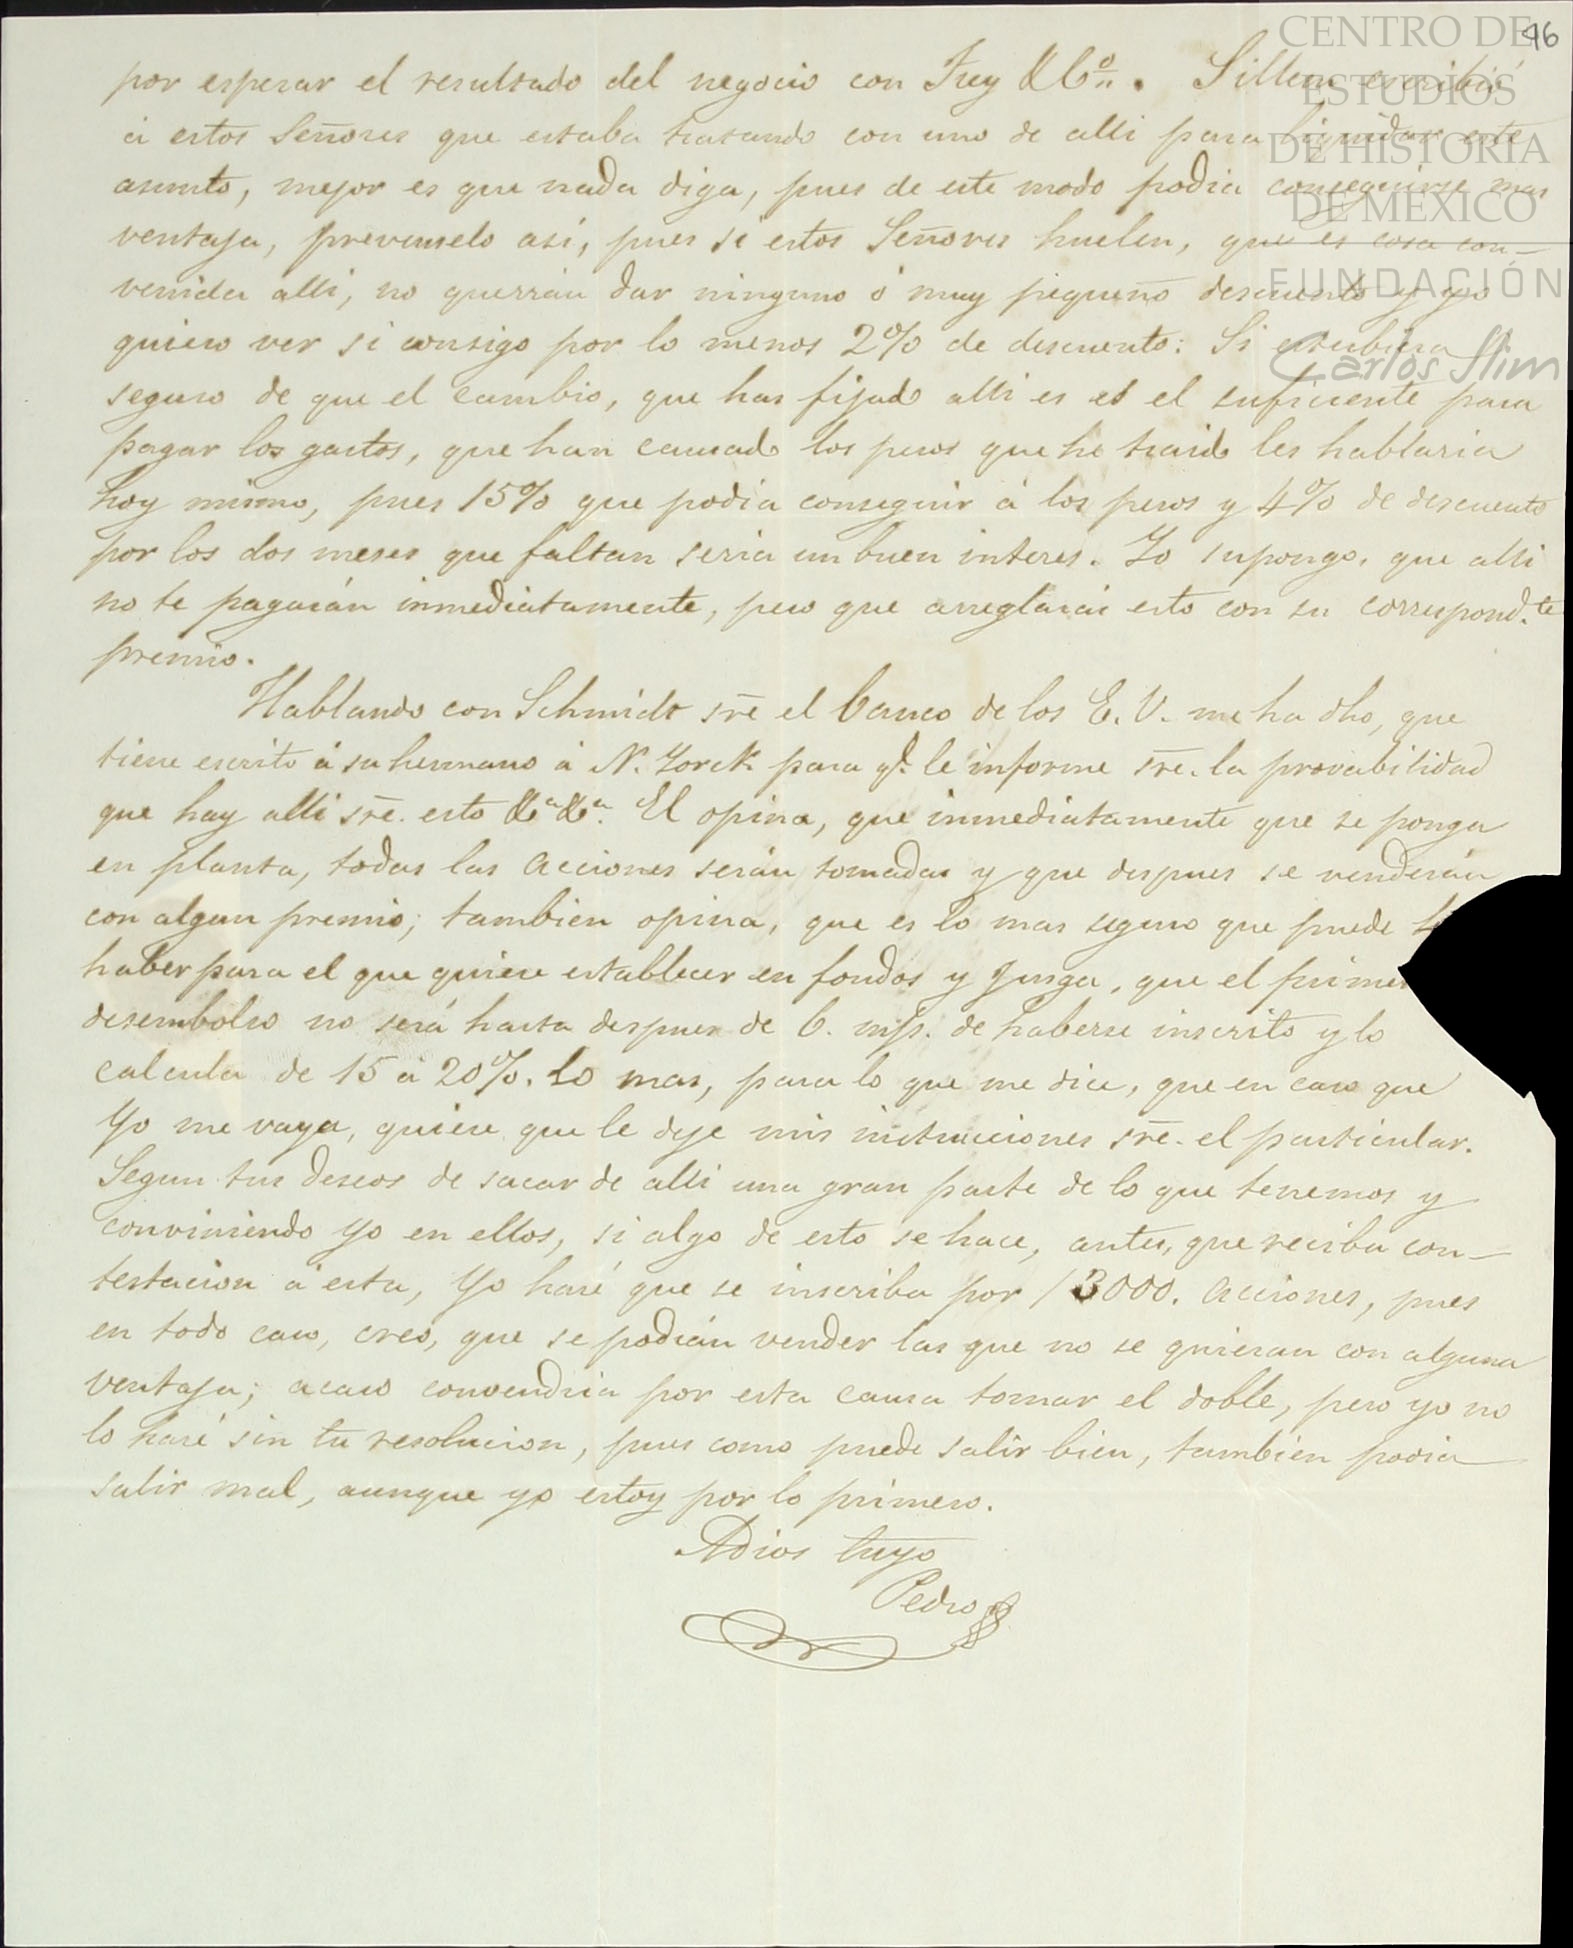 CENTRO DE
ESTUDIOS
DE HISTORIA
DE MÉXICO
FUNDACIÓN
Carlos Slim
46
por esperar el resultado del negocio con Frey & Co. Sillem escribió
á estos Señores que estaba tratando con uno de alli para liquidar este
asunto, mejor es que nada diga, pues de este modo podia conseguirse mas
ventaja, prevenselo asi, pues si estos Señores huelen, que es cosa con-
venida alli, no querrán dar ninguno ó muy pequeño descuento y yo
quiero ver si consigo por lo menos 2% de descuento: Si estubiera
seguro de que el cambio, que has fijado alli es el suficiente para
pagar los gastos, que han causado los pesos que he traido les hablaria
hoy mismo, pues 15% que podia conseguir á los pesos y 4% de descuento
por los dos meses que faltan seria un buen interes. Yo supongo, que alli
no te pagarán inmediatamente, pero que arreglarás esto con su correspond.te
premio.
Hablando con Schmidt sre el banco de los E. U. me ha dho, que
tiene escrito á su hermano á N. Yorck para qe. le informe sre. la provabilidad
que hay alli sre. esto &a &a. El opina, que inmediatamente que se ponga
en planta, todas las acciones serán tomadas y que despues se venderán
con algun premio; tambien opina, que es lo mas seguro que puede
haber para el que quiere establecer en fondos y jusga, que el primer
desembolso no será hasta despues de 6. ms. de haberse inscrito y lo
calcula de 15 á 20%. lo mas, para lo que me dice, que en caso que
Yo me vaya, quiere que le deje mis instrucciones sre. el particular.
Segun tus deseos de sacar de alli una gran parte de lo que tenemos y
conviniendo Yo en ellos, si algo de esto se hace, antes, que reciba con-
testacion á esta, Yo haré que se inscriba por 13000. acciones, pues
en todo caso, creo, que se podrán vender las que no se quieran con alguna
ventaja; acaso convendria por esta causa tomar el doble, pero yo no
lo haré sin tu resolucion, pues como puede salir bien, tambien podia
salir mal, aunque yo estoy por lo primero.
Adios tuyo
Pedro